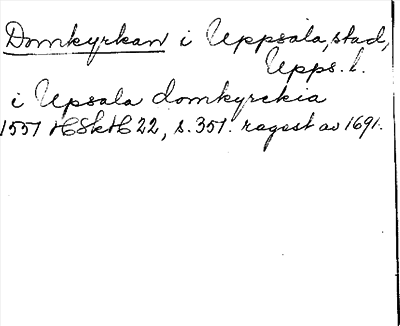 Domkyrkan i Uppsala, stad,
Upps. l.
i Upsala domkyrckia
1557 HSkH 22, s. 351. regest av 1691.